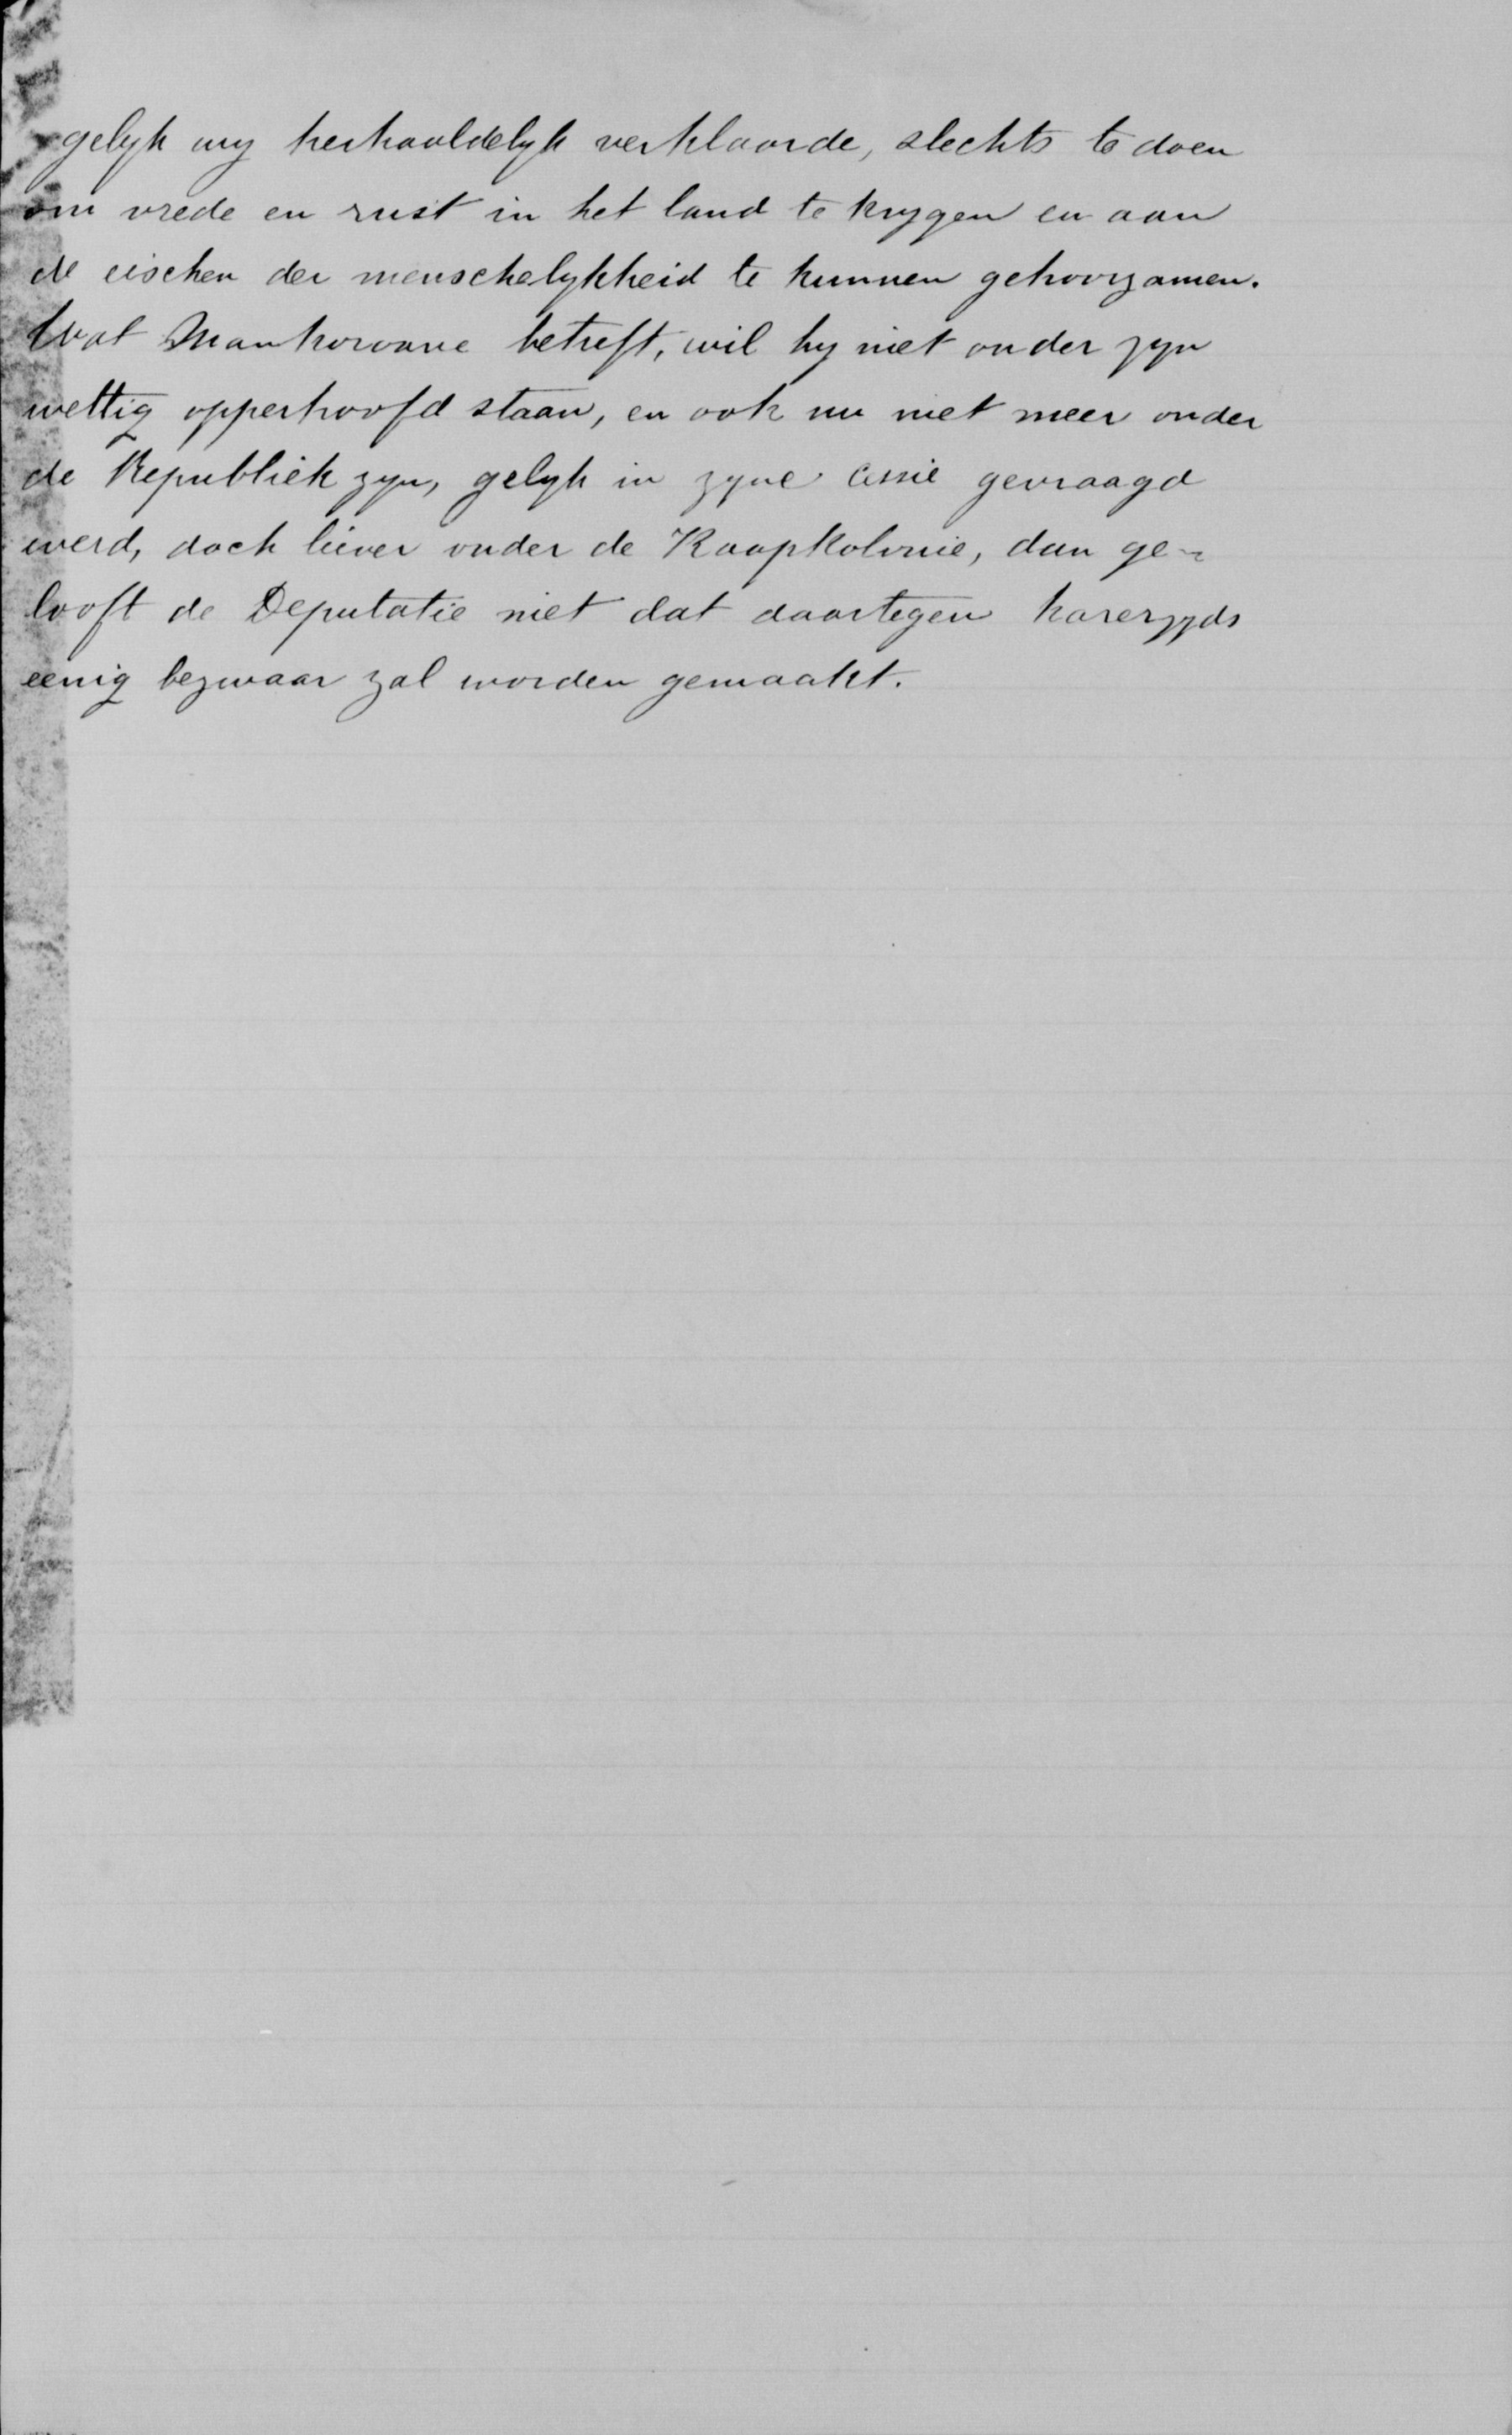 gelyk wy herhaaldelyk verklaarde, slechts te doen
om vrede en rust in het land te krygen en aan
de eischen der menschelykheid te kunnen gehoorzamen.
Wat Mankoroane betreft, wil hy niet onder zyn
wettig opperhoofd staan, en ook nu niet meer onder
de Republiek zyn, gelyk in zyne cessie gevraagd
werd, doch liever onder de Kaapkolonie, dan ge-
looft de Deputatie niet dat daartegen harerzyds
eenig bezwaar zal worden gemaakt.